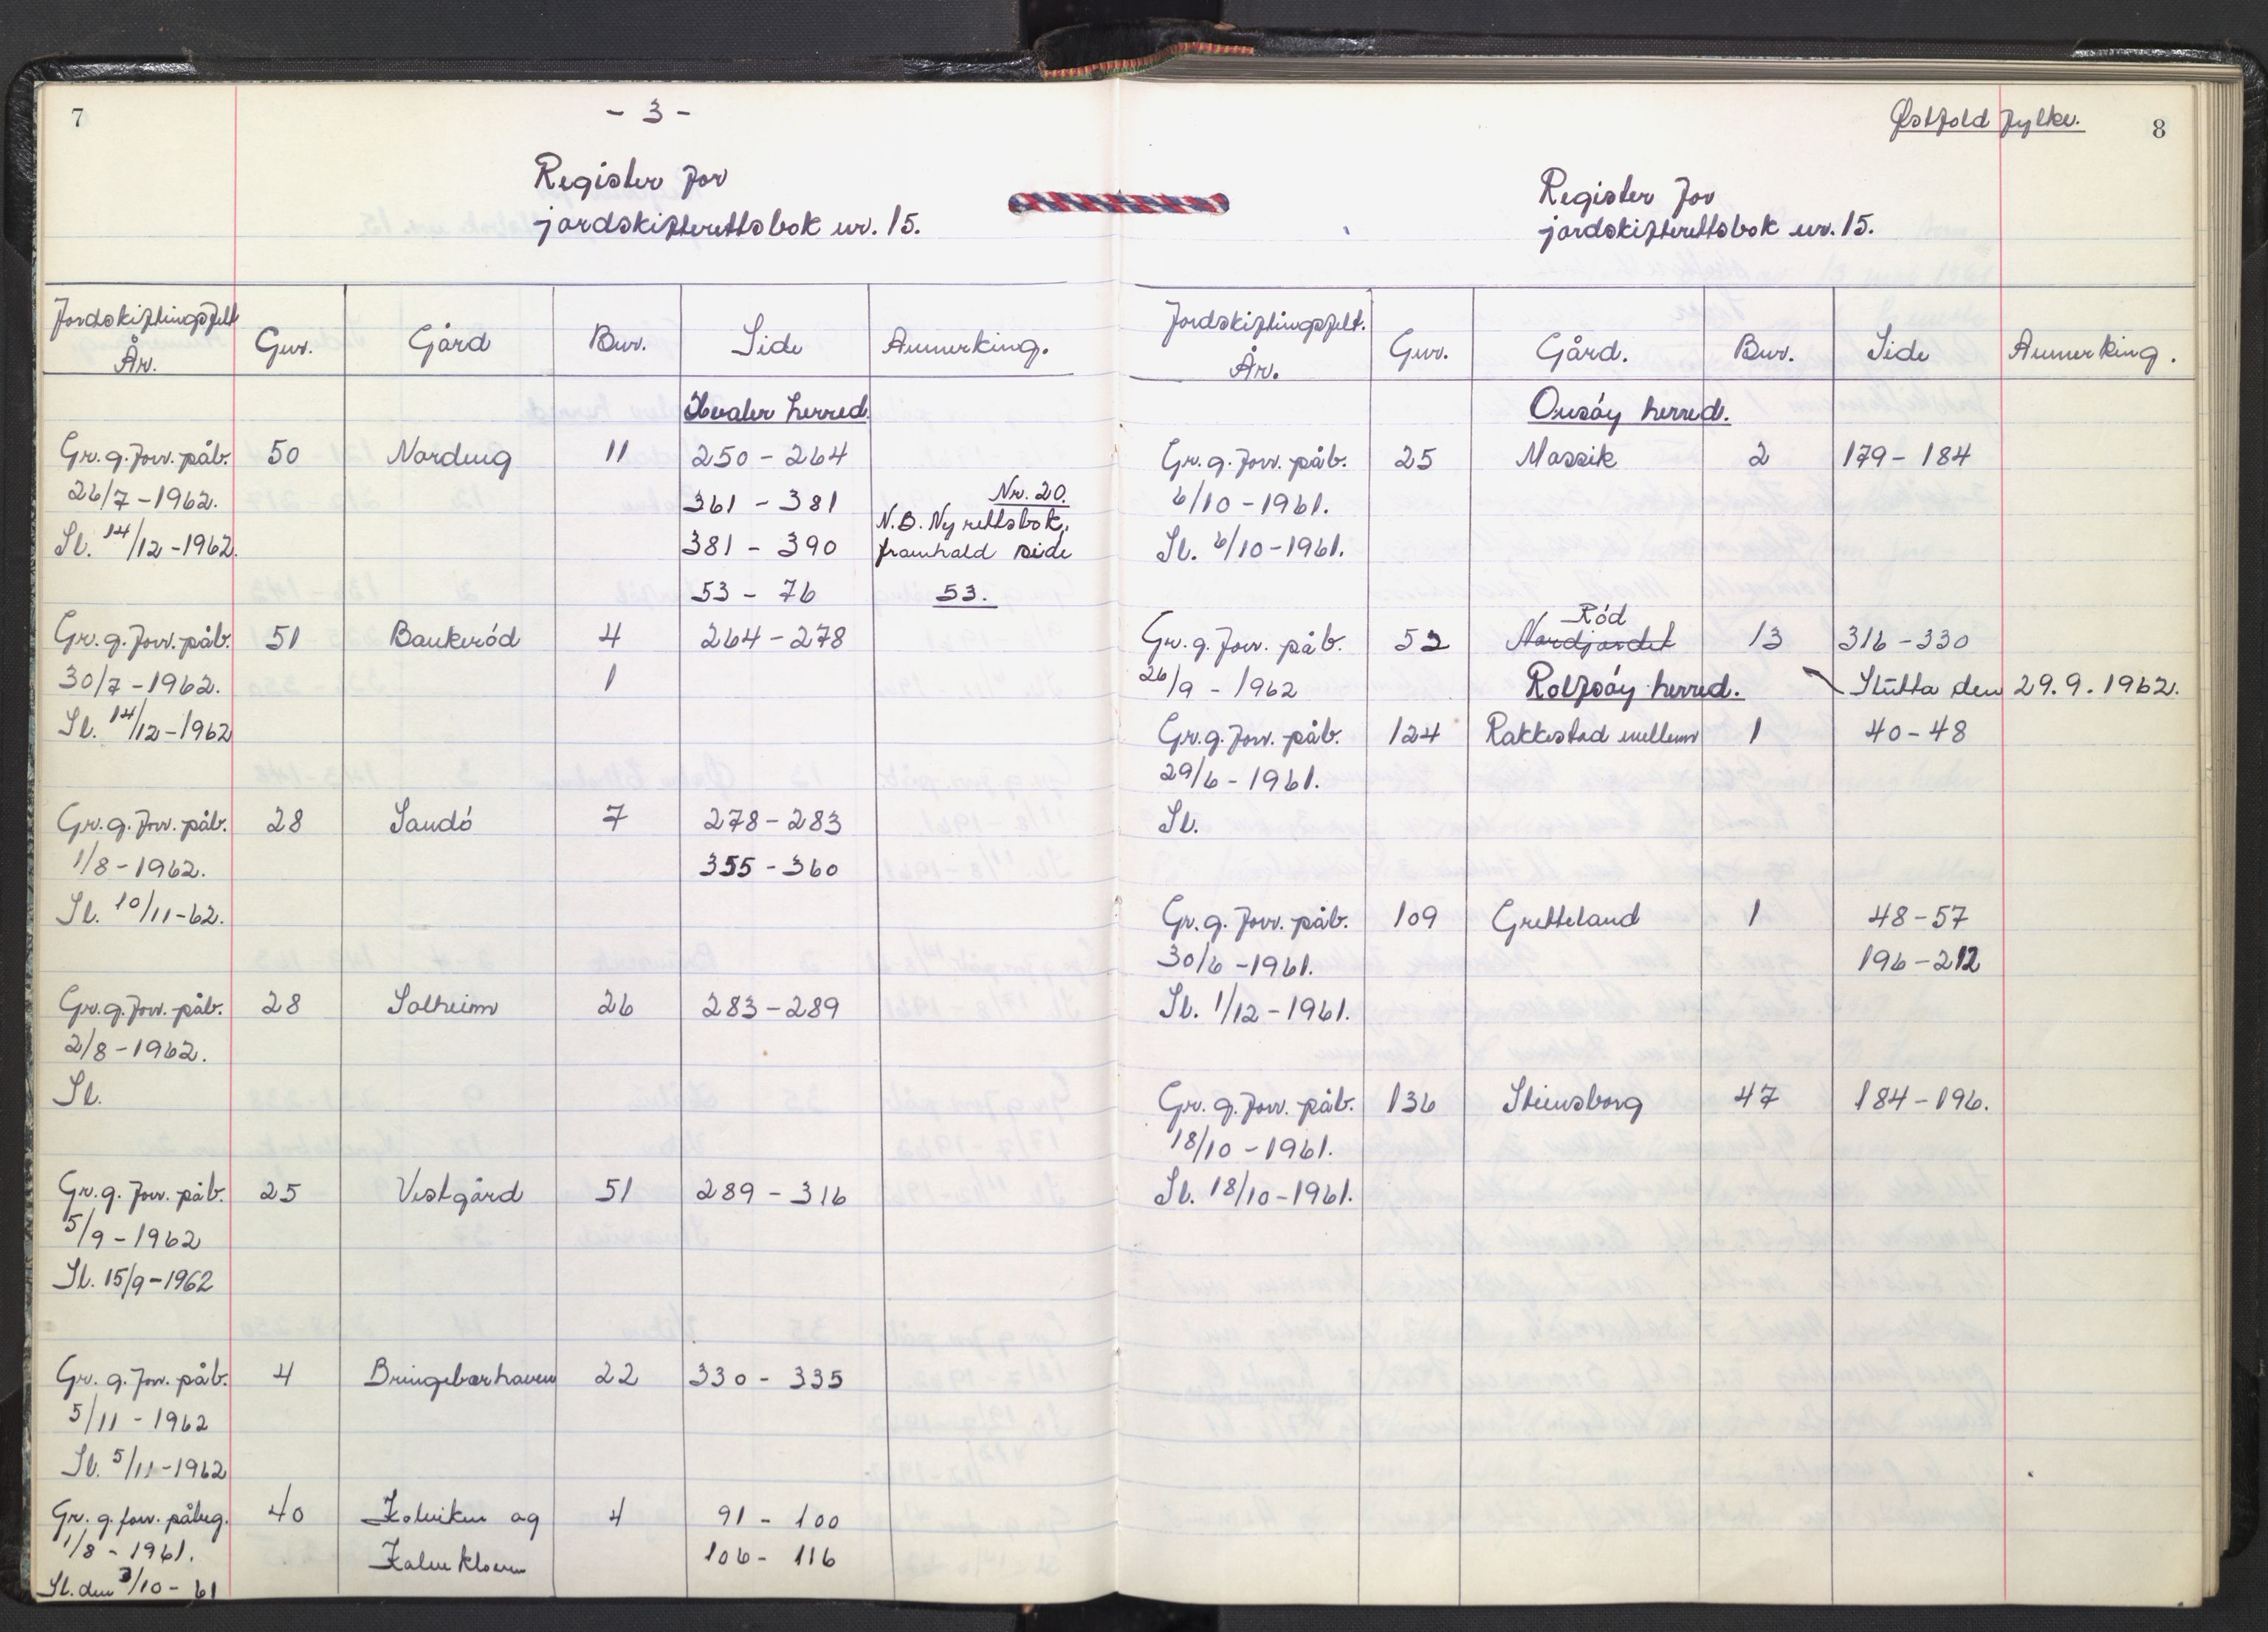 7
- 3 -
Register for
jordskifterettsbok nr. 15.
Jordskiftingsfelt År. Gnr. Gård Bnr. Side Anmerking.
Hvaler herred.
Gr. g. forr. påb. 50 Nordeng 11 250 - 264
26/7 - 1962. 361 - 381 Nr. 20.
N.B. Ny rettsbok,
Sl. 14/12 - 1962. 381 - 390 framhald side
53 - 76 53.
Gr. g. forr. påb. 51 Bankerød 4 264 - 278
30/7 - 1962. 1
Sl. 14/12 - 1962
Gr. g. forr. påb. 28 Sandø 7 278 - 283
1/8 - 1962. 355 - 360
Sl. 10/11 - 62.
Gr. g. forr. påb. 28 Solheim 26 283 - 289
2/8 - 1962.
Sl.
Gr. g. forr. påb. 25 Vestgård 51 289 - 316
5/9 - 1962
Sl. 15/9 - 1962
Gr. g. forr. påb. 4 Bringebærhaven 22 330 - 335
5/11 - 1962
Sl. 5/11 - 1962
Gr. g. forr. påbeg. 40 og 4 91 - 100
1/8 - 1961. 106 - 116
Sl. den 3/10 - 61
Østfold fylke. 8
Register for
jordskifterettsbok nr. 15.
Jordskiftingsfelt. År. Gnr. Gård. Bnr. Side Anmerking.
Onsøy herred.
Gr. g. forr. påb. 25 Mossik 2 179 - 184
6/10 - 1961.
Sl. 6/10 - 1961.
Rød
Gr. g. forr. påb. 52 Nordjordet 13 316 - 330
26/9 - 1962 Rolfsøy herred. Slutta den 29.9.1962.
Gr. g. forr. påb. 124 Rakkestad mellem 1 40 - 48
29/6 - 1961.
Sl.
Gr. g. forr. påb. 109 Gretteland 1 48 - 57
30/6 - 1961. 196 - 212
Sl. 1/12 - 1961.
Gr. g. forr. påb. 136 Steinsborg 47 184 - 196.
18/10 - 1961.
Sl. 18/10 - 1961.